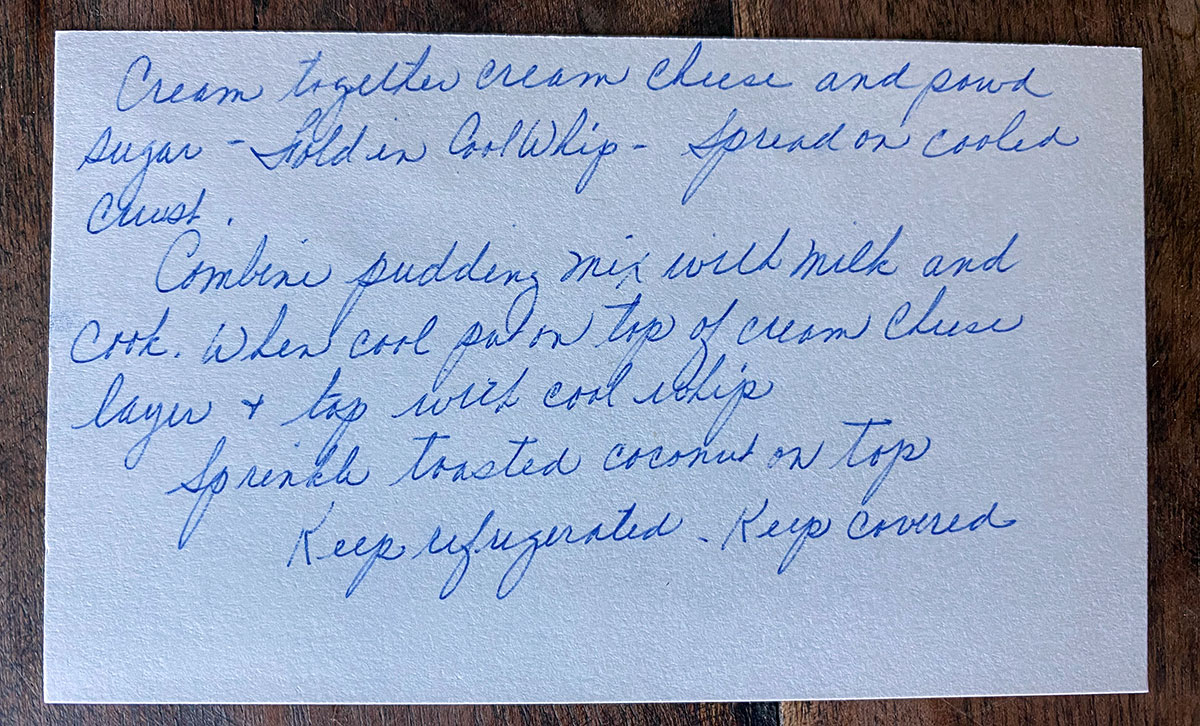 Cream together cream cheese and powd
sugar - Fold in Cool Whip - Spread on cooled
crust.
Combine pudding mix with milk and
cook. When cool put on top of cream cheese
layer + top with cool whip
Sprinkle toasted coconut on top
Keep refrigerated - Keep covered